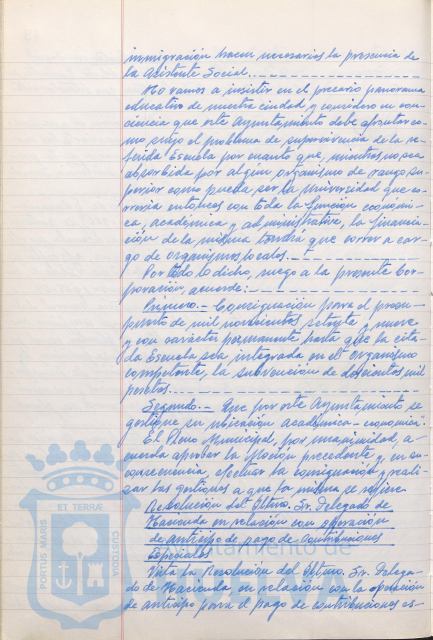 inmigración hacen necesarios la presencia de
la Asistente Social.
No vamos a insistir en el precario panorama
educativo de nuestra ciudad y considero en con-
ciencia que este Ayuntamiento debe afrontar co-
mo suyo el problema de supervivencia de la re-
ferida Escuela por cuanto que, mientras no sea
absorbida por algún organismo de rango su-
perior como pueda ser la Universidad que co-
rrería entonces con toda la función económi-
ca, académica y administrativa, la financia-
ción de la misma tendrá que correr a car-
go de organismos locales.
Por todo lo dicho, ruego a la presente Cor-
poración, acuerde:
Primero.- Consignación para el presu-
puesto de mil novecientos setenta y nueve
y con carácter permanente hasta que la cita-
da Escuela sea integrada en el organismo
competente, la subvención de doscientas mil
pesetas.
Segundo.- Que por este Ayuntamiento se
gestione su ubicación académica-económica".
El Pleno Municipal, por unanimidad, a-
cuerda aprobar la Moción precedente y en su
consecuencia, efectuar la consignación y reali-
zar las gestiones a que la misma se refiere.
Resolución del Iltmo. Sr. Delegado de
Hacienda en relación con operación
de anticipo de pago de contribuciones
especiales
Vista la Resolución del Iltmo. Sr. Delega-
do de Hacienda, en relación con la operación
de anticipo para el pago de contribuciones es-
PORTUS MAGIS
ET TERRAE
CUSTODIA
Ayuntamiento de